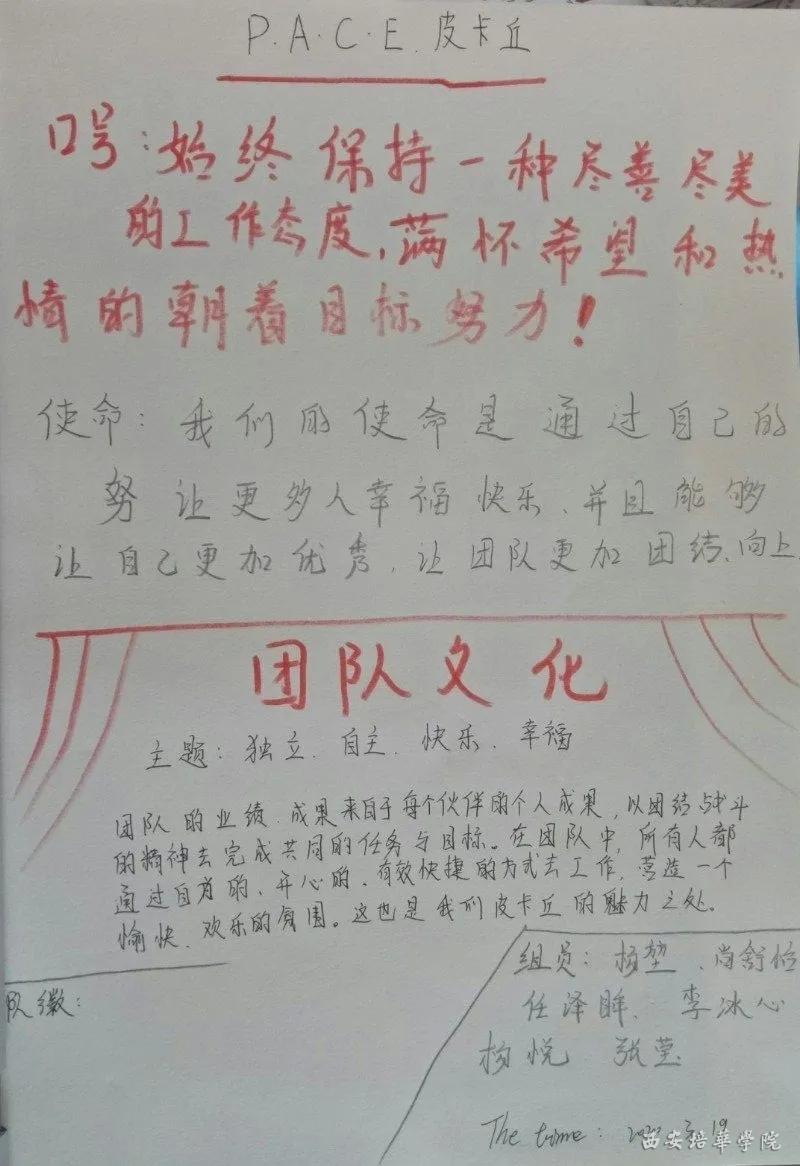 P.A.C.E.皮卡丘
口号：始终保持一种尽善尽美
的工作态度，满怀希望和热
情的朝着目标努力！
使命：我们的使命是通过自己的
努让更多人幸福快乐、并且能够
让自己更加优秀，让团队更加团结、向上
团队文化
主题：独立、自主、快乐、幸福
团队的业绩、成果来自于每个伙伴的个人成果，以团结战斗
的精神去完成共同的任务与目标。在团队中，所有人都
通过自身的、开心的、有效快捷的方式去工作，营造一个
愉快、欢乐的氛围。这也是我们皮卡丘的魅力之处。
队徽：
组员：杨堃、尚舒怡
任泽眸、李冰心
杨悦 张莹
The time：
西安培華学院